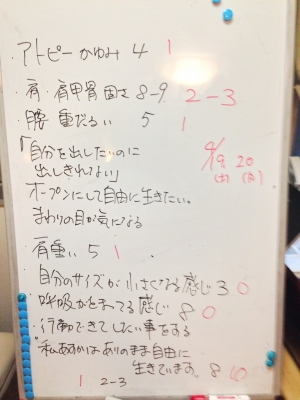 ・アトピー かゆみ 4 1
・肩・肩甲骨 固さ 8-9 2-3
・腰 重だるい 5 1
「自分を出したいのに
出しきれない」
4/19 20
(土) (日)
オープンにして自由に生きたい。
まわりの目が気になる
・肩重い 5 1
・自分のサイズが小さくなる感じ 3 0
・呼吸が止まってる感じ 8 0
・行動できてしたい事をする
"私あすかはありのまま自由に
生きています。 8 10
1 2-3